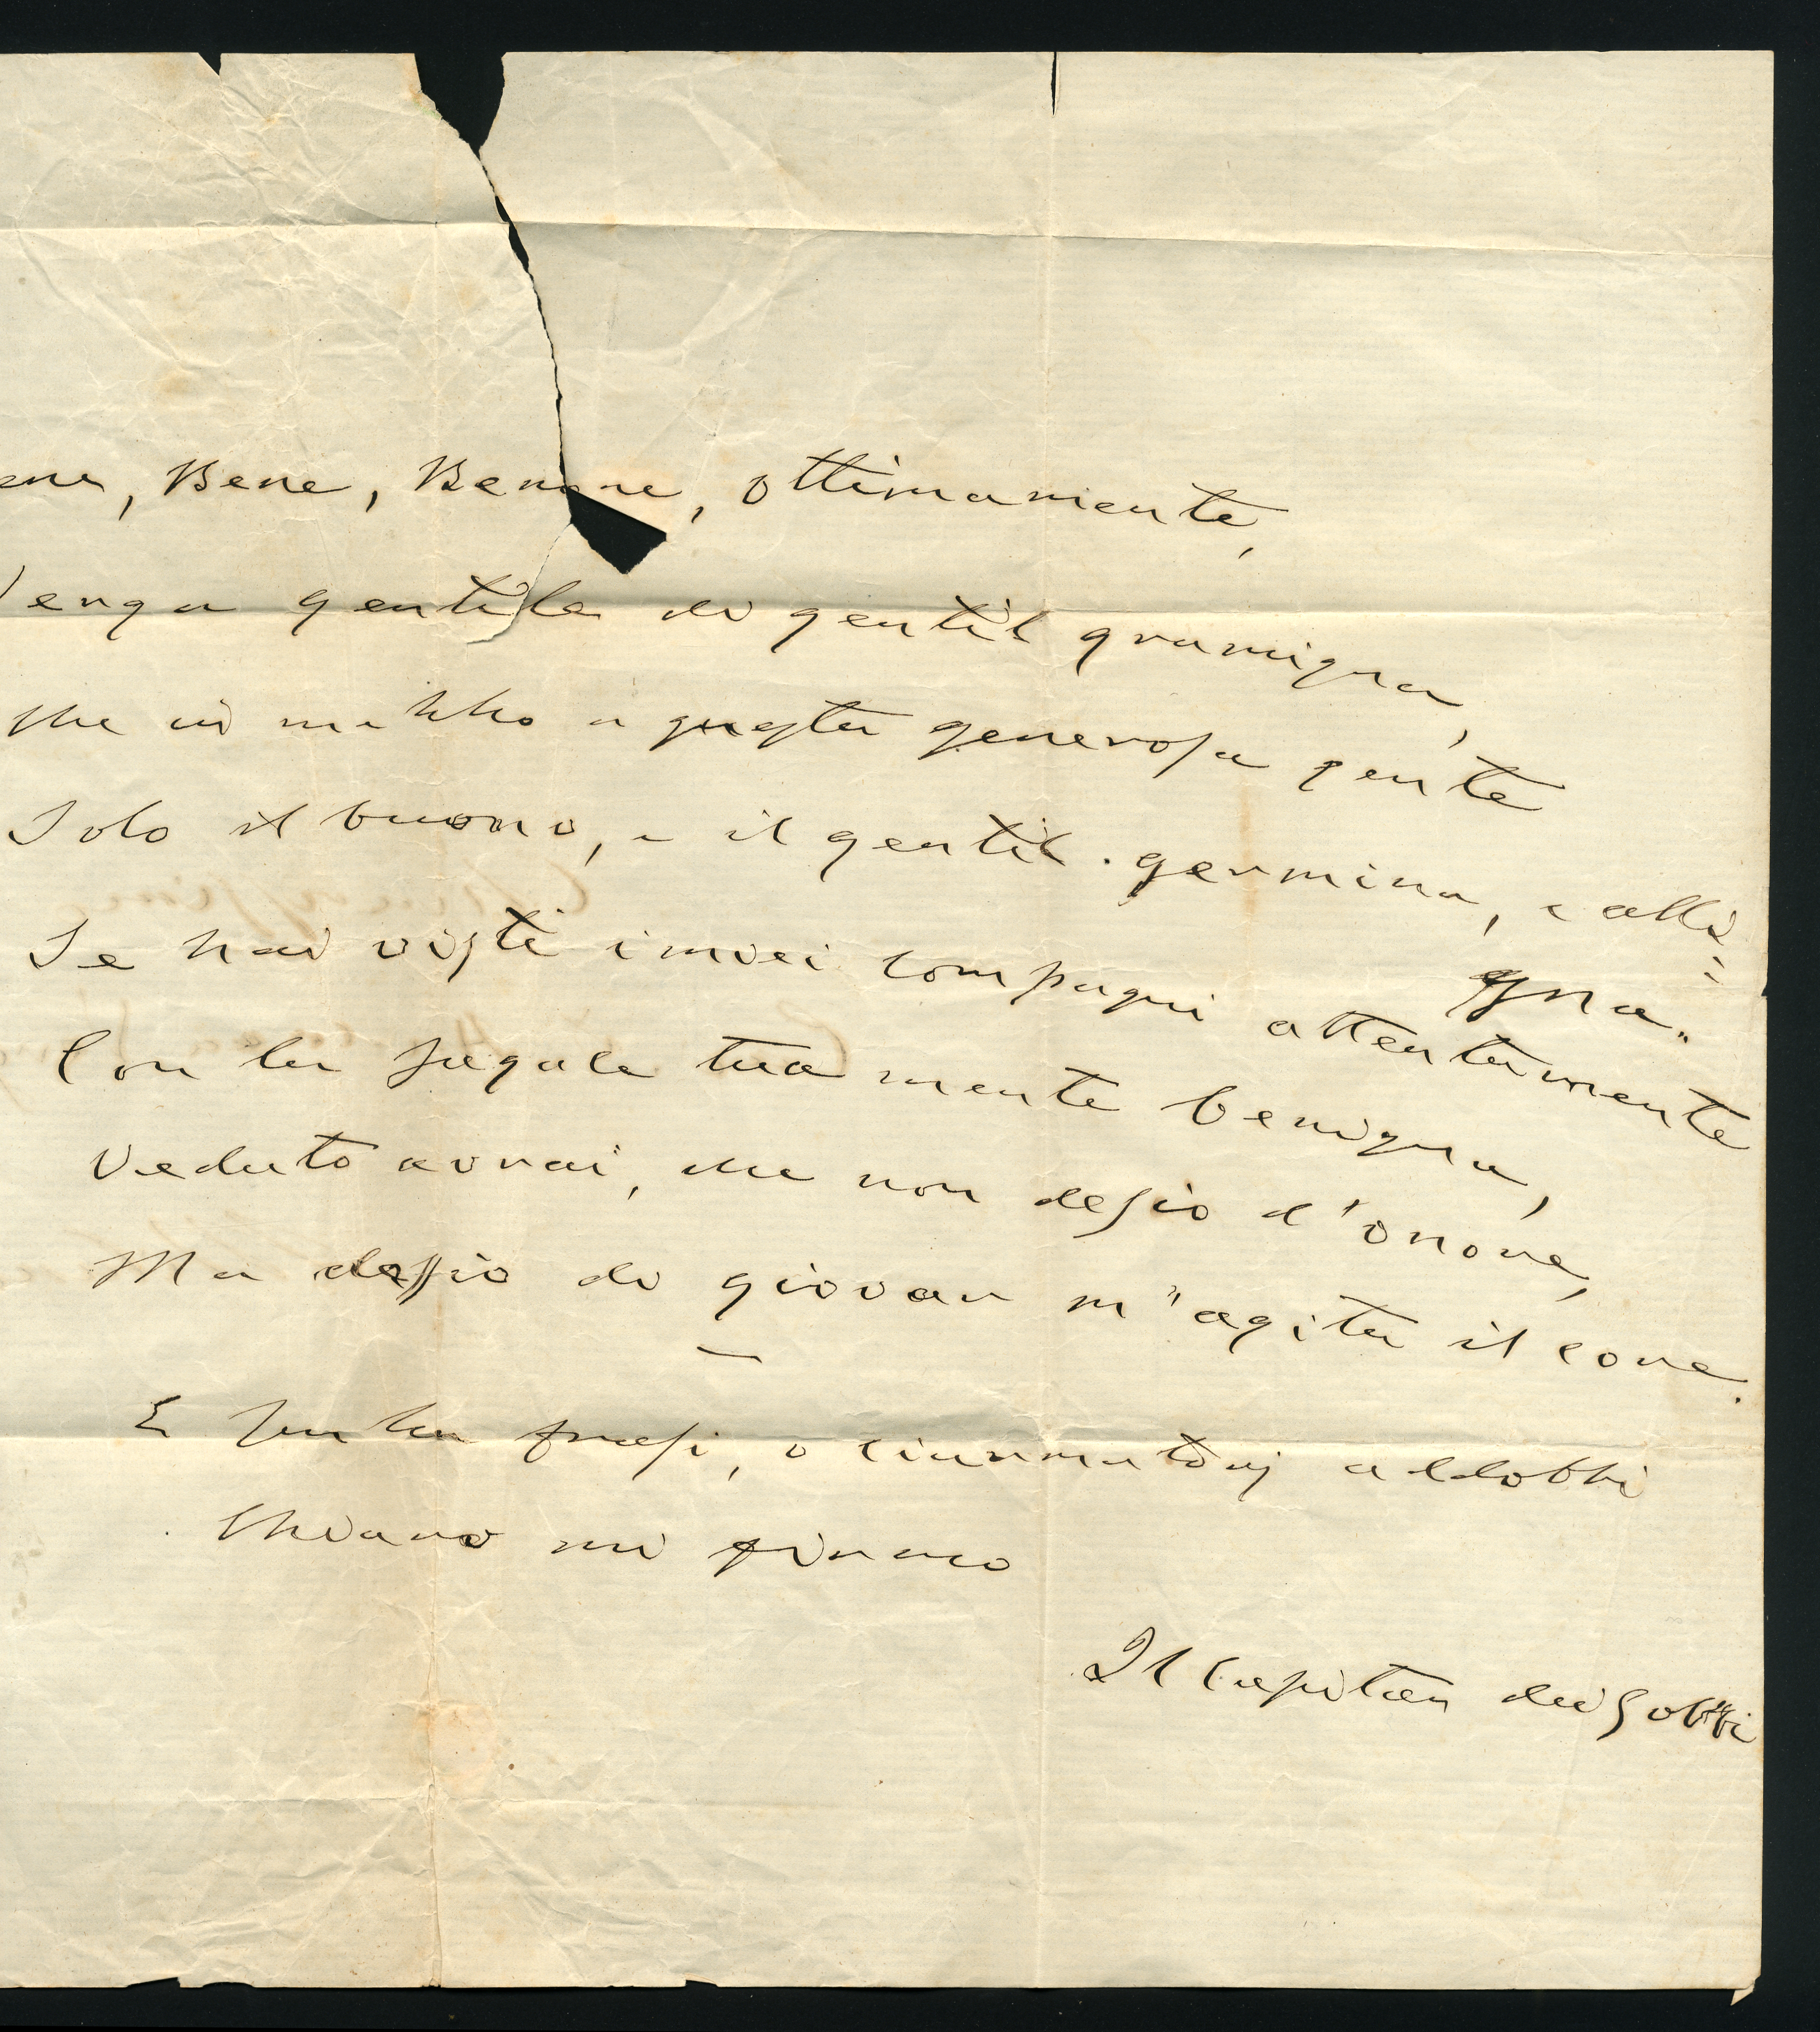 ene, Bene, Benone, Ottimamente,
Venga gentile di gentil gramigna,
Che in mezzo a questa generosa gente
Solo il buono, e il gentil germina, e alli=
gna.
Se hai visti i miei compagni attentamente
Con la sagace tua mente benigna,
Veduto avrai, che non desio d'onore,
Ma desio di giovar m'agita il core.
E senza frasi, o ciurmatorj addobbi
Chiaro mi firmo
Il Capitan dei Gobbi